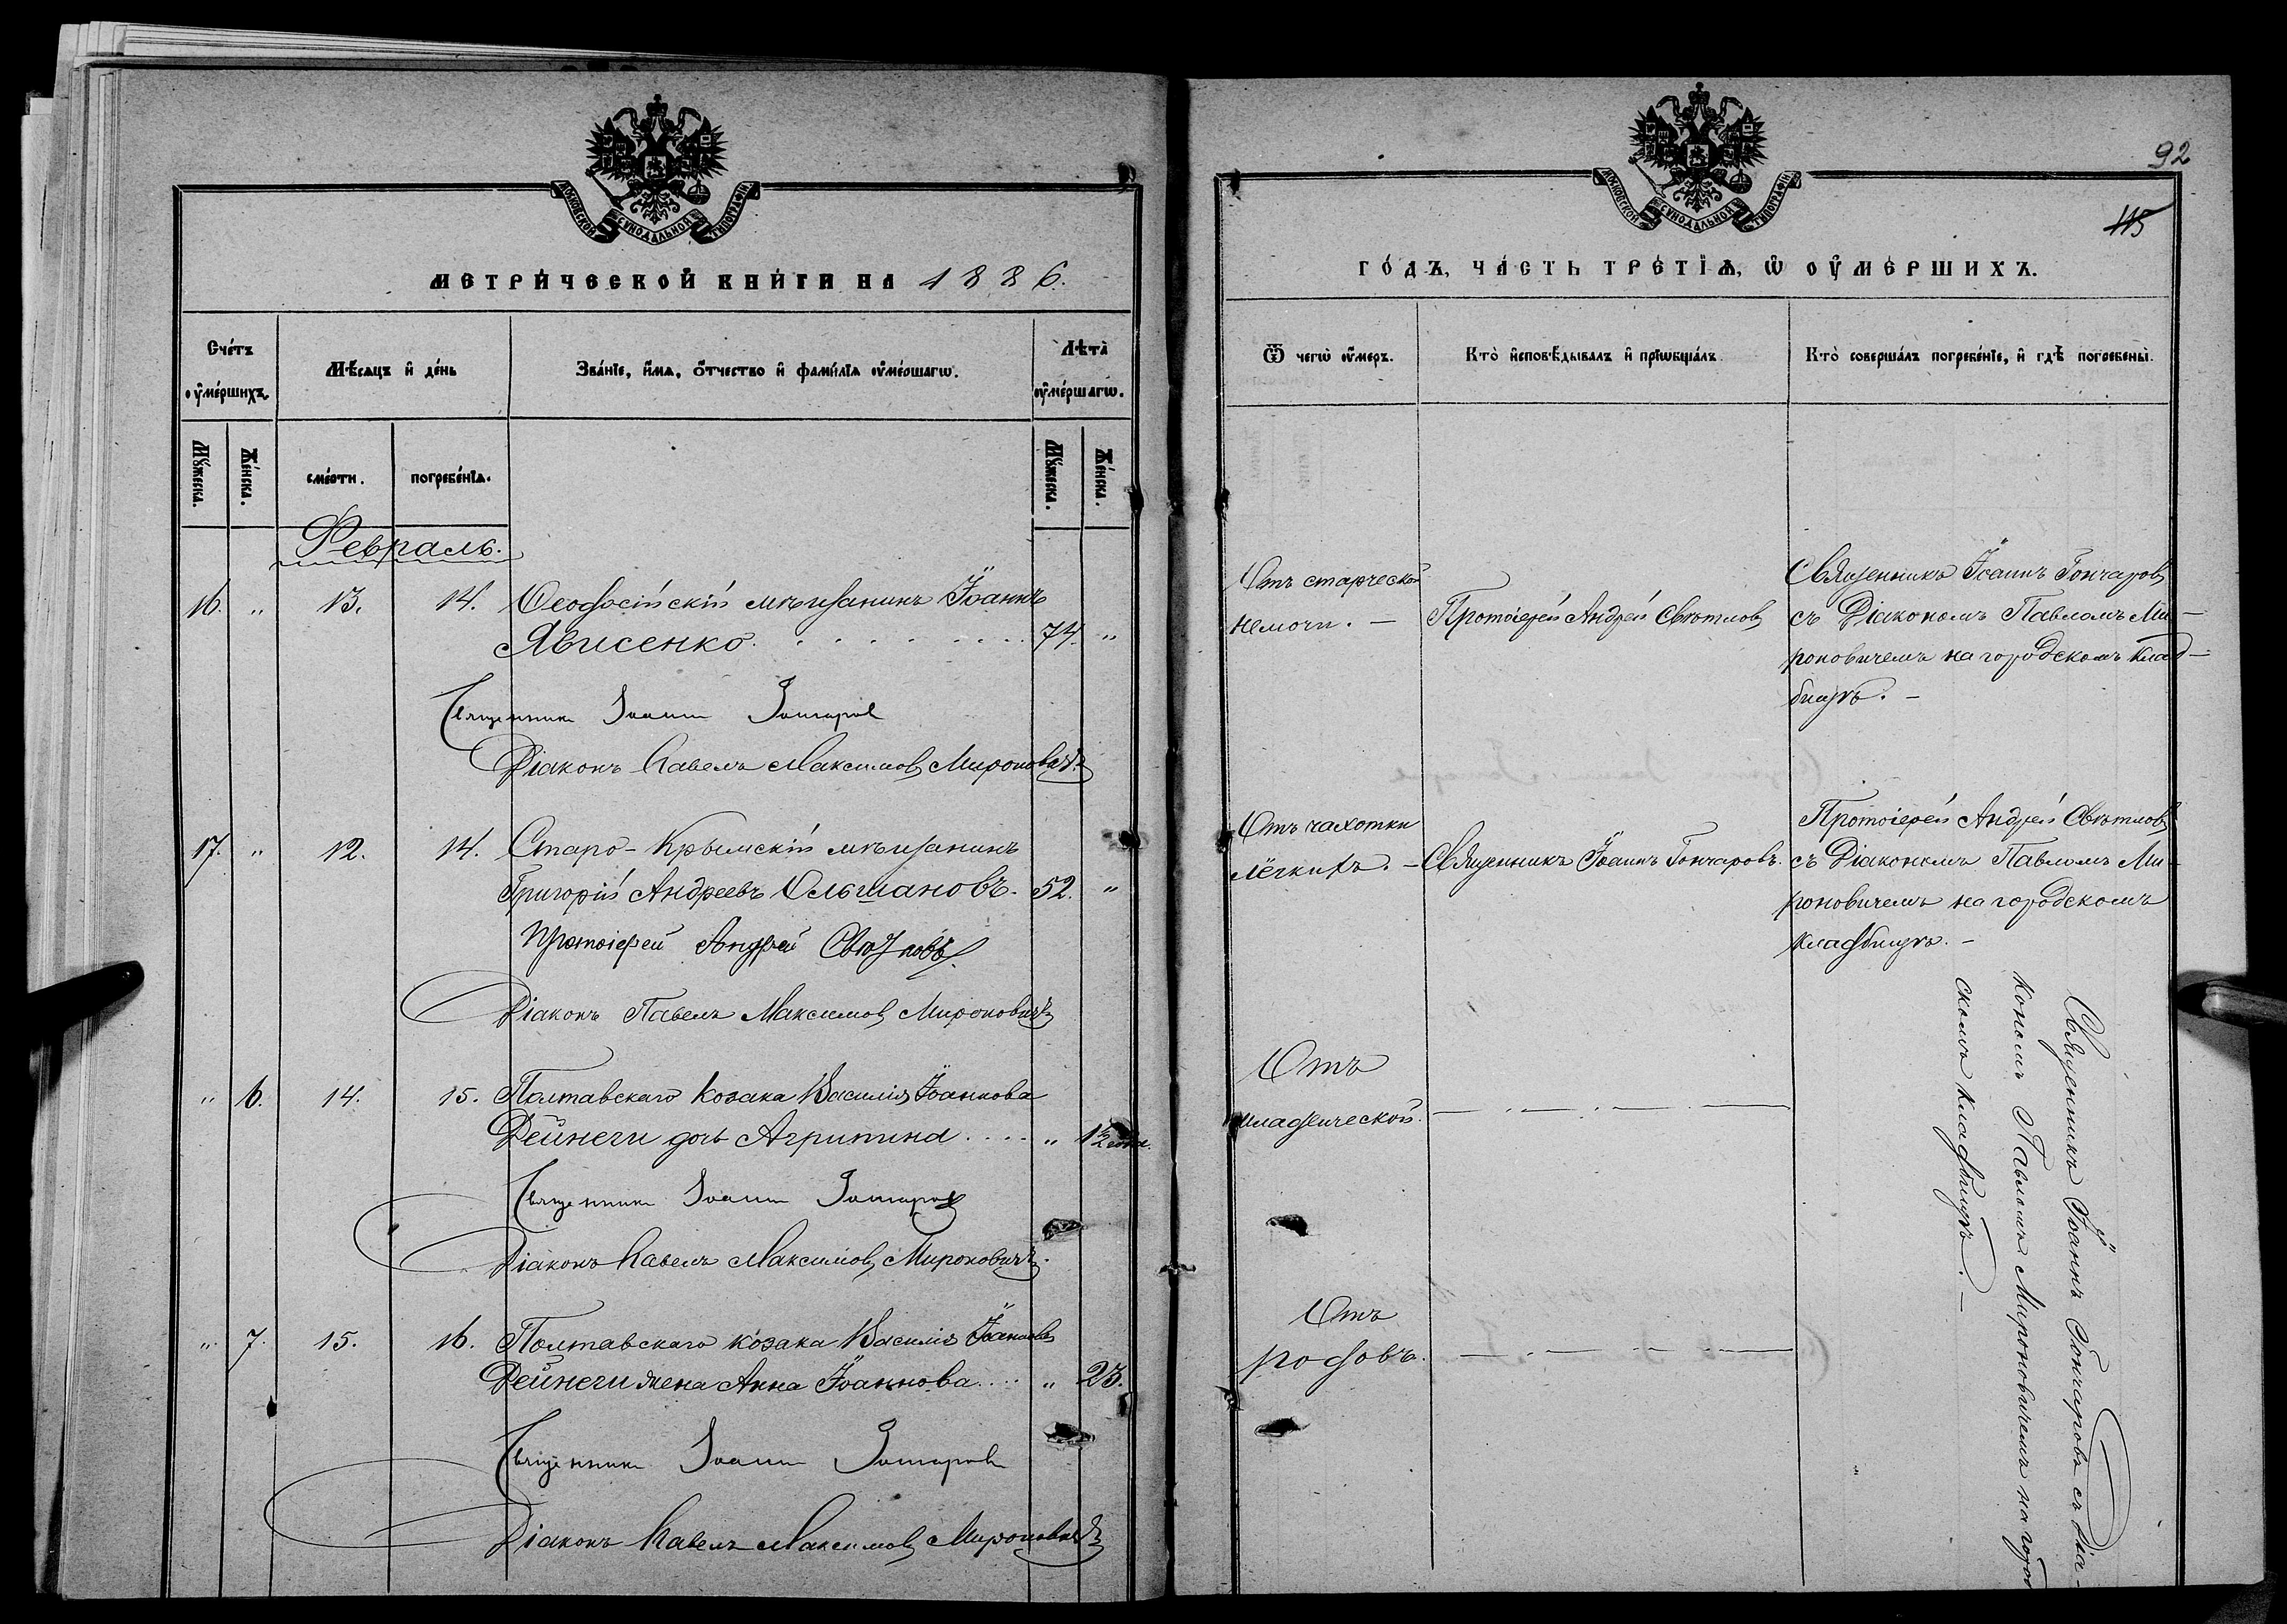 МОСКОВСКОЙ СѴНОДАЛЬНОЙ ТИПОГРАФІИ
МЕТРИ́ЧЕСКОЙ КНИ́ГИ НА 1886.
Сче́тъ оу҆ме́ршихъ.
Мѣ́сяцъ и҆ де́нь
Зва́нїе, и҆́мѧ, ѻ҆́тчество и҆ фамѝлїѧ оу҆ме́ршагѡ.
Лѣта̀ оу҆ме́ршагѡ.
Мꙋ́жеска.
Же́нска.
сме́рти.
погребе́нїѧ.
Мꙋ́жеска.
Же́нска.
Февраль.
16. „ 13. 14. Ѳеодосійскій мѣщанинъ Іоаннъ
Явисенко. 74. „
Священникъ Іоаннъ Гончаровъ
Діаконъ Павелъ Максимовъ Мироновичъ
17. „ 12. 14. Старо-Крымскій мѣщанинъ
Григорій Андреевъ Ольшановъ. 52. „
Протоіерей Андрей Свѣтловъ
Діаконъ Павелъ Максимовъ Мироновичъ
„ 6. 14. 15. Полтавскаго козака Василія Іоаннова
Дейнеги дочь Агрипина .... „ 1½ года.
Священникъ Іоаннъ Гончаровъ
Діаконъ Павелъ Максимовъ Мироновичъ.
„ 7. 15. 16. Полтавскаго козака Василія Іоаннова
Дейнеги жена Анна Іоаннова.... „ 23.
Священникъ Іоаннъ Гончаровъ
Діаконъ Павелъ Максимовъ Мироновичъ
92
115
МОСКОВСКОЙ СѴНОДАЛЬНОЙ ТИПОГРАФІИ
ГО́ДЪ, ЧА́СТЬ ТРЕ́ТЇѦ, Ѡ҆ ОУ҆МЕ́РШИХЪ.
Ѿ чегѡ̀ оу҆́меръ.
Кто̀ и҆сповѣ́дывалъ и҆ прїѡбща́лъ.
Кто̀ соверша́лъ погребе́нїе, и҆ гдѣ̀ погребены̀.
Отъ старческой
немочи. —
Протоіерей Андрей Свѣтловъ
Священникъ Іоаннъ Гончаровъ
съ Діакономъ Павломъ Ми-
роновичемъ на городскомъ клад-
бищѣ. —
Отъ чахотки
лёгкихъ. —
Священникъ Іоаннъ Гончаровъ.
Протоіерей Андрей Свѣтловъ
съ Діакономъ Павломъ Ми-
роновичемъ на городскомъ
кладбищѣ. —
Отъ
младенческой.
Отъ
родовъ.
Священникъ Іоаннъ Гончаровъ съ Діа-
кономъ Павломъ Мироновичемъ на город
скомъ кладбищѣ. —